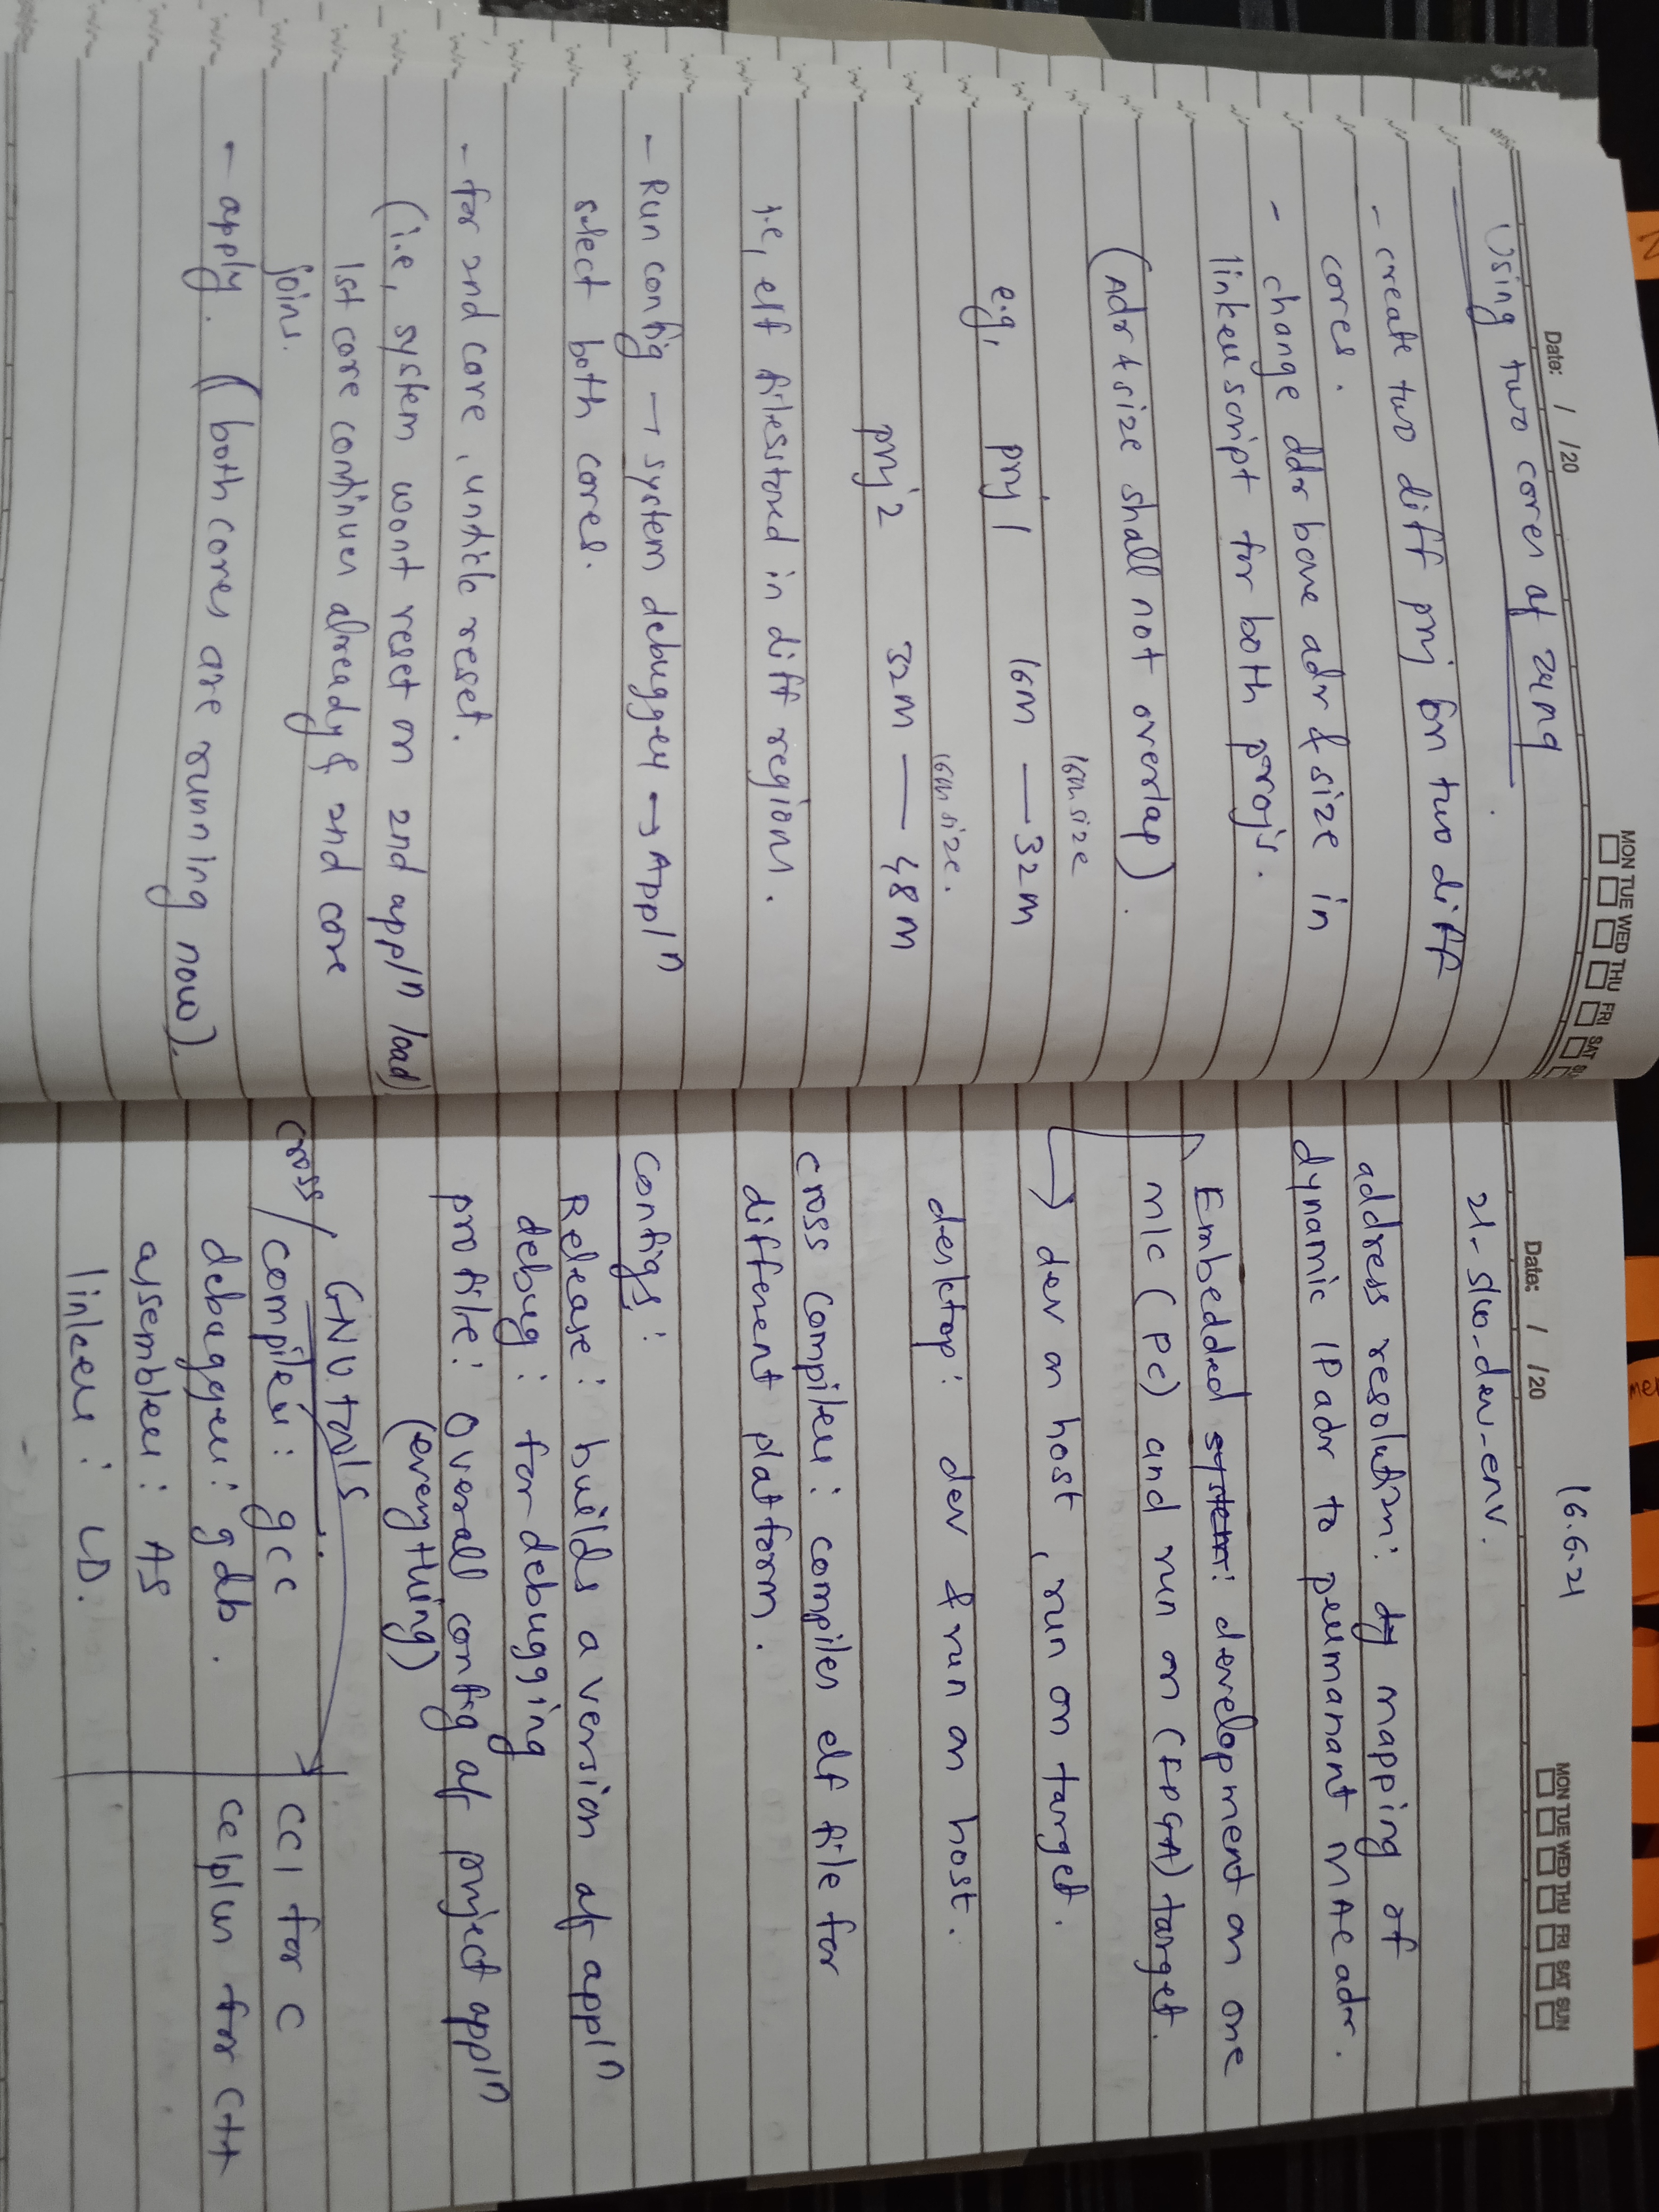 Date: / /20
MON TUE WED THU FRI SAT
Using two cores of zynq
- create two diff prj for two diff
cores.
- change ddr base adr & size in
linker script for both proj's.
(Adr & size shall not overlap).
16m size
e.g, prj1 16m — 32m
16m size.
prj2 32m — 48m
i.e, elf files stored in diff regions.
- Run config → system debugger → Appl^n
select both cores.
- for 2nd core, untick reset.
(i.e, system wont reset on 2nd appl^n load)
1st core continues already & 2nd core
joins.
- apply. (both cores are running now).
Date: / /20
MON TUE WED THU FRI SAT SUN
16.6.21
21- s/w-dev-env.
address resolution: dy mapping of
dynamic IP adr to permanant MAC adr.
Embedded system: development on one
m/c (PC) and run on (FPGA) target.
→ dev on host, run on target.
desktop: dev & run on host.
cross compiler: compiles elf file for
different platform.
Configs:
Release: builds a version of appl^n
debug: for debugging
profile: overall config of project appl^n
(everything)
GNU tools
cross/compiler: gcc cc1 for C
debugger: gdb. cc1plus for C++
assembler: AS
linker: LD.